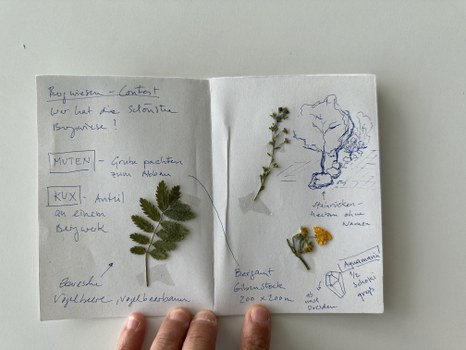 Bergwiesen - Contest
Wer hat die schönste
Bergwiese?
MUTEN - Grube pachten
zum Abbau
KUX - Anteil
an einem
Bergwerk
Eberesche
Vogelbeere, Vogelbeerbaum
Steinrücken-
ohne
Namen
Bergamt
200 x 200 m
Aquamarin
1/2
groß
nach
Dresden